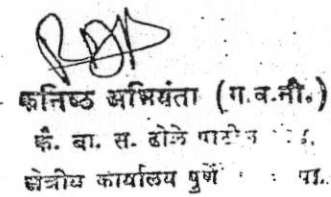 कनिष्ठ अभियंता (ग.व.नी.)
कै. बा. स. ढोले पाटील
क्षेत्रीय कार्यालय पुणे पा.